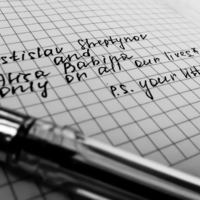 stislav Sheptynov
and
Alisa Babiya
only on all our lives*
P.S. your